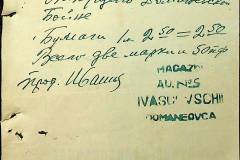 Бойне
Бумаги 1 м 2.50 = 2.50
Всего две марки 50 пф
Прод. Иваниц
MAGAZIN
AU. No 5
IVASC VSCHI
DOMANEOVCA